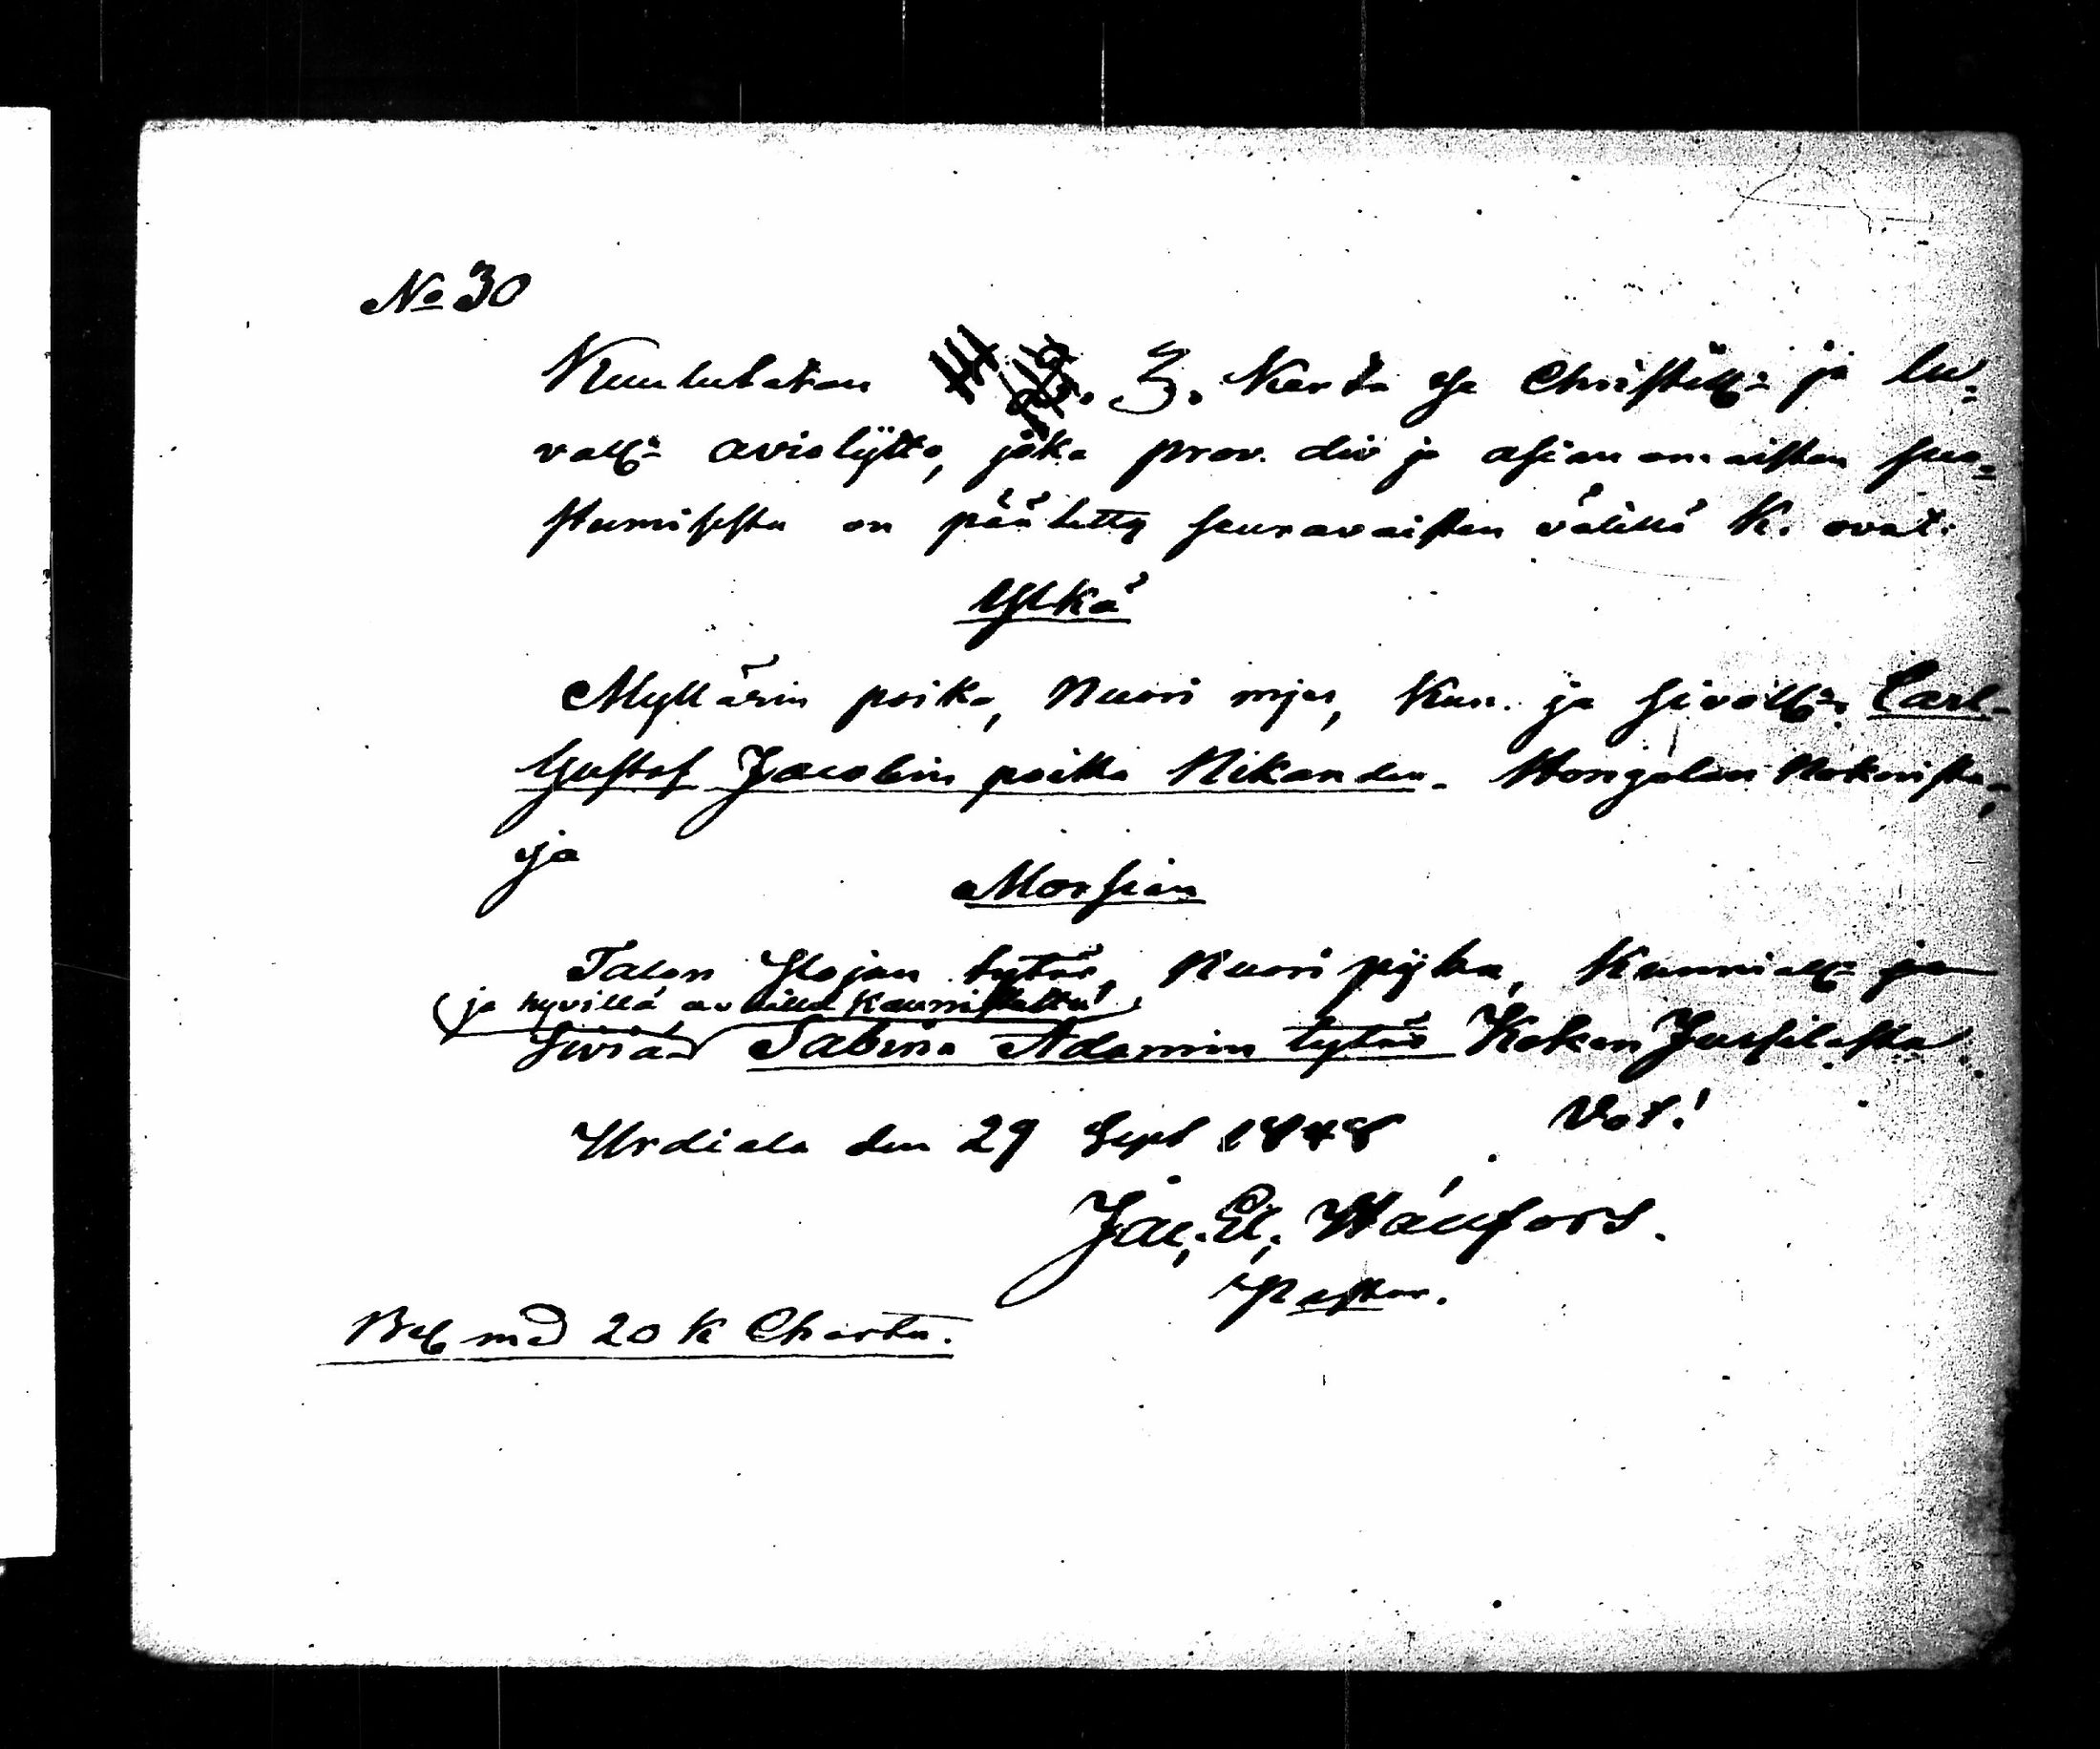 No 30
Kuulutetan 3. Kerta ja Christill:ä ja lu-
vall:ä aviolijtto, joka prov. div ja asianomaisten suo-
stumisesta on päätetty seuravaisten välillä K. ovat:
Ylkä
Myllärin poika, Nuori mjes, Kun. ja sivoll:n Carl-
Gustaf Jacobin poika Nikander. Hongolan Nokorista,
ja
Morsian
Talon Hojan tytär, Nuori pijka, Kunniall:n ja
(ja hyvillä avuilla Kaunistettu)
Siviä Sabina Adamin tytär Koken Jussilasta.
Urdiala den 29 Sept 1848 Vot!
Jac. Ed. Wånfors.
Pastor.
Bel med 20 K Charta.